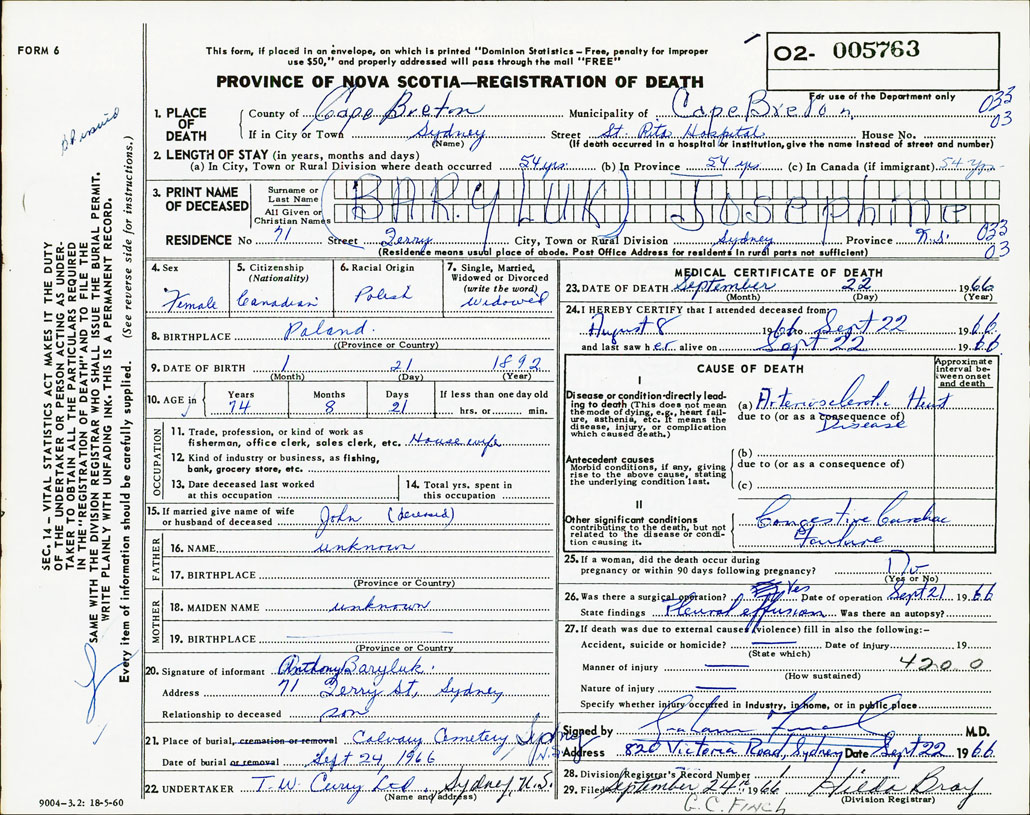 FORM 6
This form, if placed in an envelope, on which is printed "Dominion Statistics – Free, penalty for improper
use $50," and properly addressed will pass through the mail "FREE"
O2- 005763
PROVINCE OF NOVA SCOTIA—REGISTRATION OF DEATH
For use of the Department only
033
03
1. PLACE OF DEATH
County of Cape Breton Municipality of Cape Breton
If in City or Town Sydney Street St. Rita Hospital House No.
(Name) (If death occurred in a hospital or institution, give the name instead of street and number)
2. LENGTH OF STAY (in years, months and days)
(a) In City, Town or Rural Division where death occurred 54 yrs. (b) In Province 54 yrs. (c) In Canada (if immigrant) 54 yrs
3. PRINT NAME OF DECEASED
Surname or Last Name
All Given or Christian Names
BARYLUK Josephine
RESIDENCE No 71 Street Terry City, Town or Rural Division Sydney Province N.S. 033
03
(Residence means usual place of abode. Post Office Address for residents in rural parts not sufficient)
4. Sex Female
5. Citizenship (Nationality) Canadian
6. Racial Origin Polish
7. Single, Married, Widowed or Divorced (write the word) widowed
8. BIRTHPLACE Poland.
((Province or Country)
9. DATE OF BIRTH 1 21 1892
(Month) (Day) (Year)
10. AGE in Years 74 Months 8 Days 21 If less than one day old
hrs. or min.
OCCUPATION
11. Trade, profession, or kind of work as
fisherman, office clerk, sales clerk, etc. House wife
12. Kind of industry or business, as fishing,
bank, grocery store, etc.
13. Date deceased last worked
at this occupation
14. Total yrs. spent in
this occupation
15. If married give name of wife
or husband of deceased John (deceased)
FATHER
16. NAME unknown
17. BIRTHPLACE
(Province or Country)
MOTHER
18. MAIDEN NAME unknown
19. BIRTHPLACE
(Province or Country)
20. Signature of informant Anthony Baryluk.
Address 71 Terry St, Sydney
Relationship to deceased son
21. Place of burial, cremation or removal Calvary Cemetery Sydney N.S.
Date of burial or removal Sept 24, 1966
22. UNDERTAKER T. W. Curry Ltd, Sydney, N.S.
(Name and address)
MEDICAL CERTIFICATE OF DEATH
23. DATE OF DEATH September 22 1966
(Month) (Day) (Year)
24. I HEREBY CERTIFY that I attended deceased from
August 8 1966 to Sept 22 1966
and last saw her alive on Sept 22 1966
CAUSE OF DEATH
Approximate interval between onset and death
I
Disease or condition directly leading to death (This does not mean
the mode of dying, e.g., heart failure, asthenia, etc. It means the
disease, injury, or complication
which caused death.)
(a) Arteriosclerotic Heart
due to (or as a consequence of)
Disease
Antecedent causes
Morbid conditions, if any, giving
rise to the above cause, stating
the underlying condition last.
(b)
due to (or as a consequence of)
(c)
II
Other significant conditions
contributing to the death, but not
related to the disease or condition causing it.
Congestive Cardiac
Failure
25. If a woman, did the death occur during
pregnancy or within 90 days following pregnancy? No
(Yes or No)
26. Was there a surgical operation? Yes Date of operation Sept 21 1966
State findings Pleural effusion Was there an autopsy?
27. If death was due to external causes (violence) fill in also the following:–
Accident, suicide or homicide? Date of injury 19
(State which)
4200
Manner of injury
(How sustained)
Nature of injury
Specify whether injury occurred in Industry, in home, or in public place
Signed by M.D.
Address 820 Victoria Road, Sydney Date Sept 22 1966
28. Division Registrar's Record Number
29. Filed September 24th 1966 Hilda Bray
(Division Registrar)
G.C. FINCH
SEC. 14 – VITAL STATISTICS ACT MAKES IT THE DUTY
OF THE UNDERTAKER OR PERSON ACTING AS UNDERTAKER TO OBTAIN ALL THE PARTICULARS REQUIRED
IN THE "REGISTRATION OF DEATH" AND TO FILE THE
SAME WITH THE DIVISION REGISTRAR WHO SHALL ISSUE THE BURIAL PERMIT.
WRITE PLAINLY WITH UNFADING INK. THIS IS A PERMANENT RECORD.
Every item of information should be carefully supplied. (See reverse side for instructions.)
9004-3.2: 18-5-60